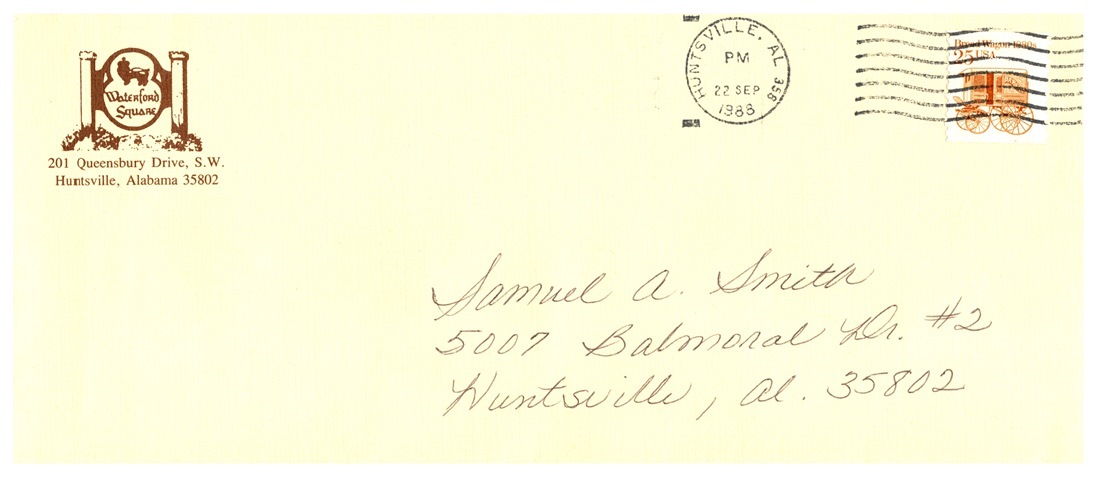 Waterford
Square
201 Queensbury Drive, S.W.
Huntsville, Alabama 35802
HUNTSVILLE, AL 358
PM
22 SEP
1988
Bread Wagon 1880s
25 USA
Samuel A. Smith
5007 Balmoral Dr. #2
Huntsville, Al. 35802